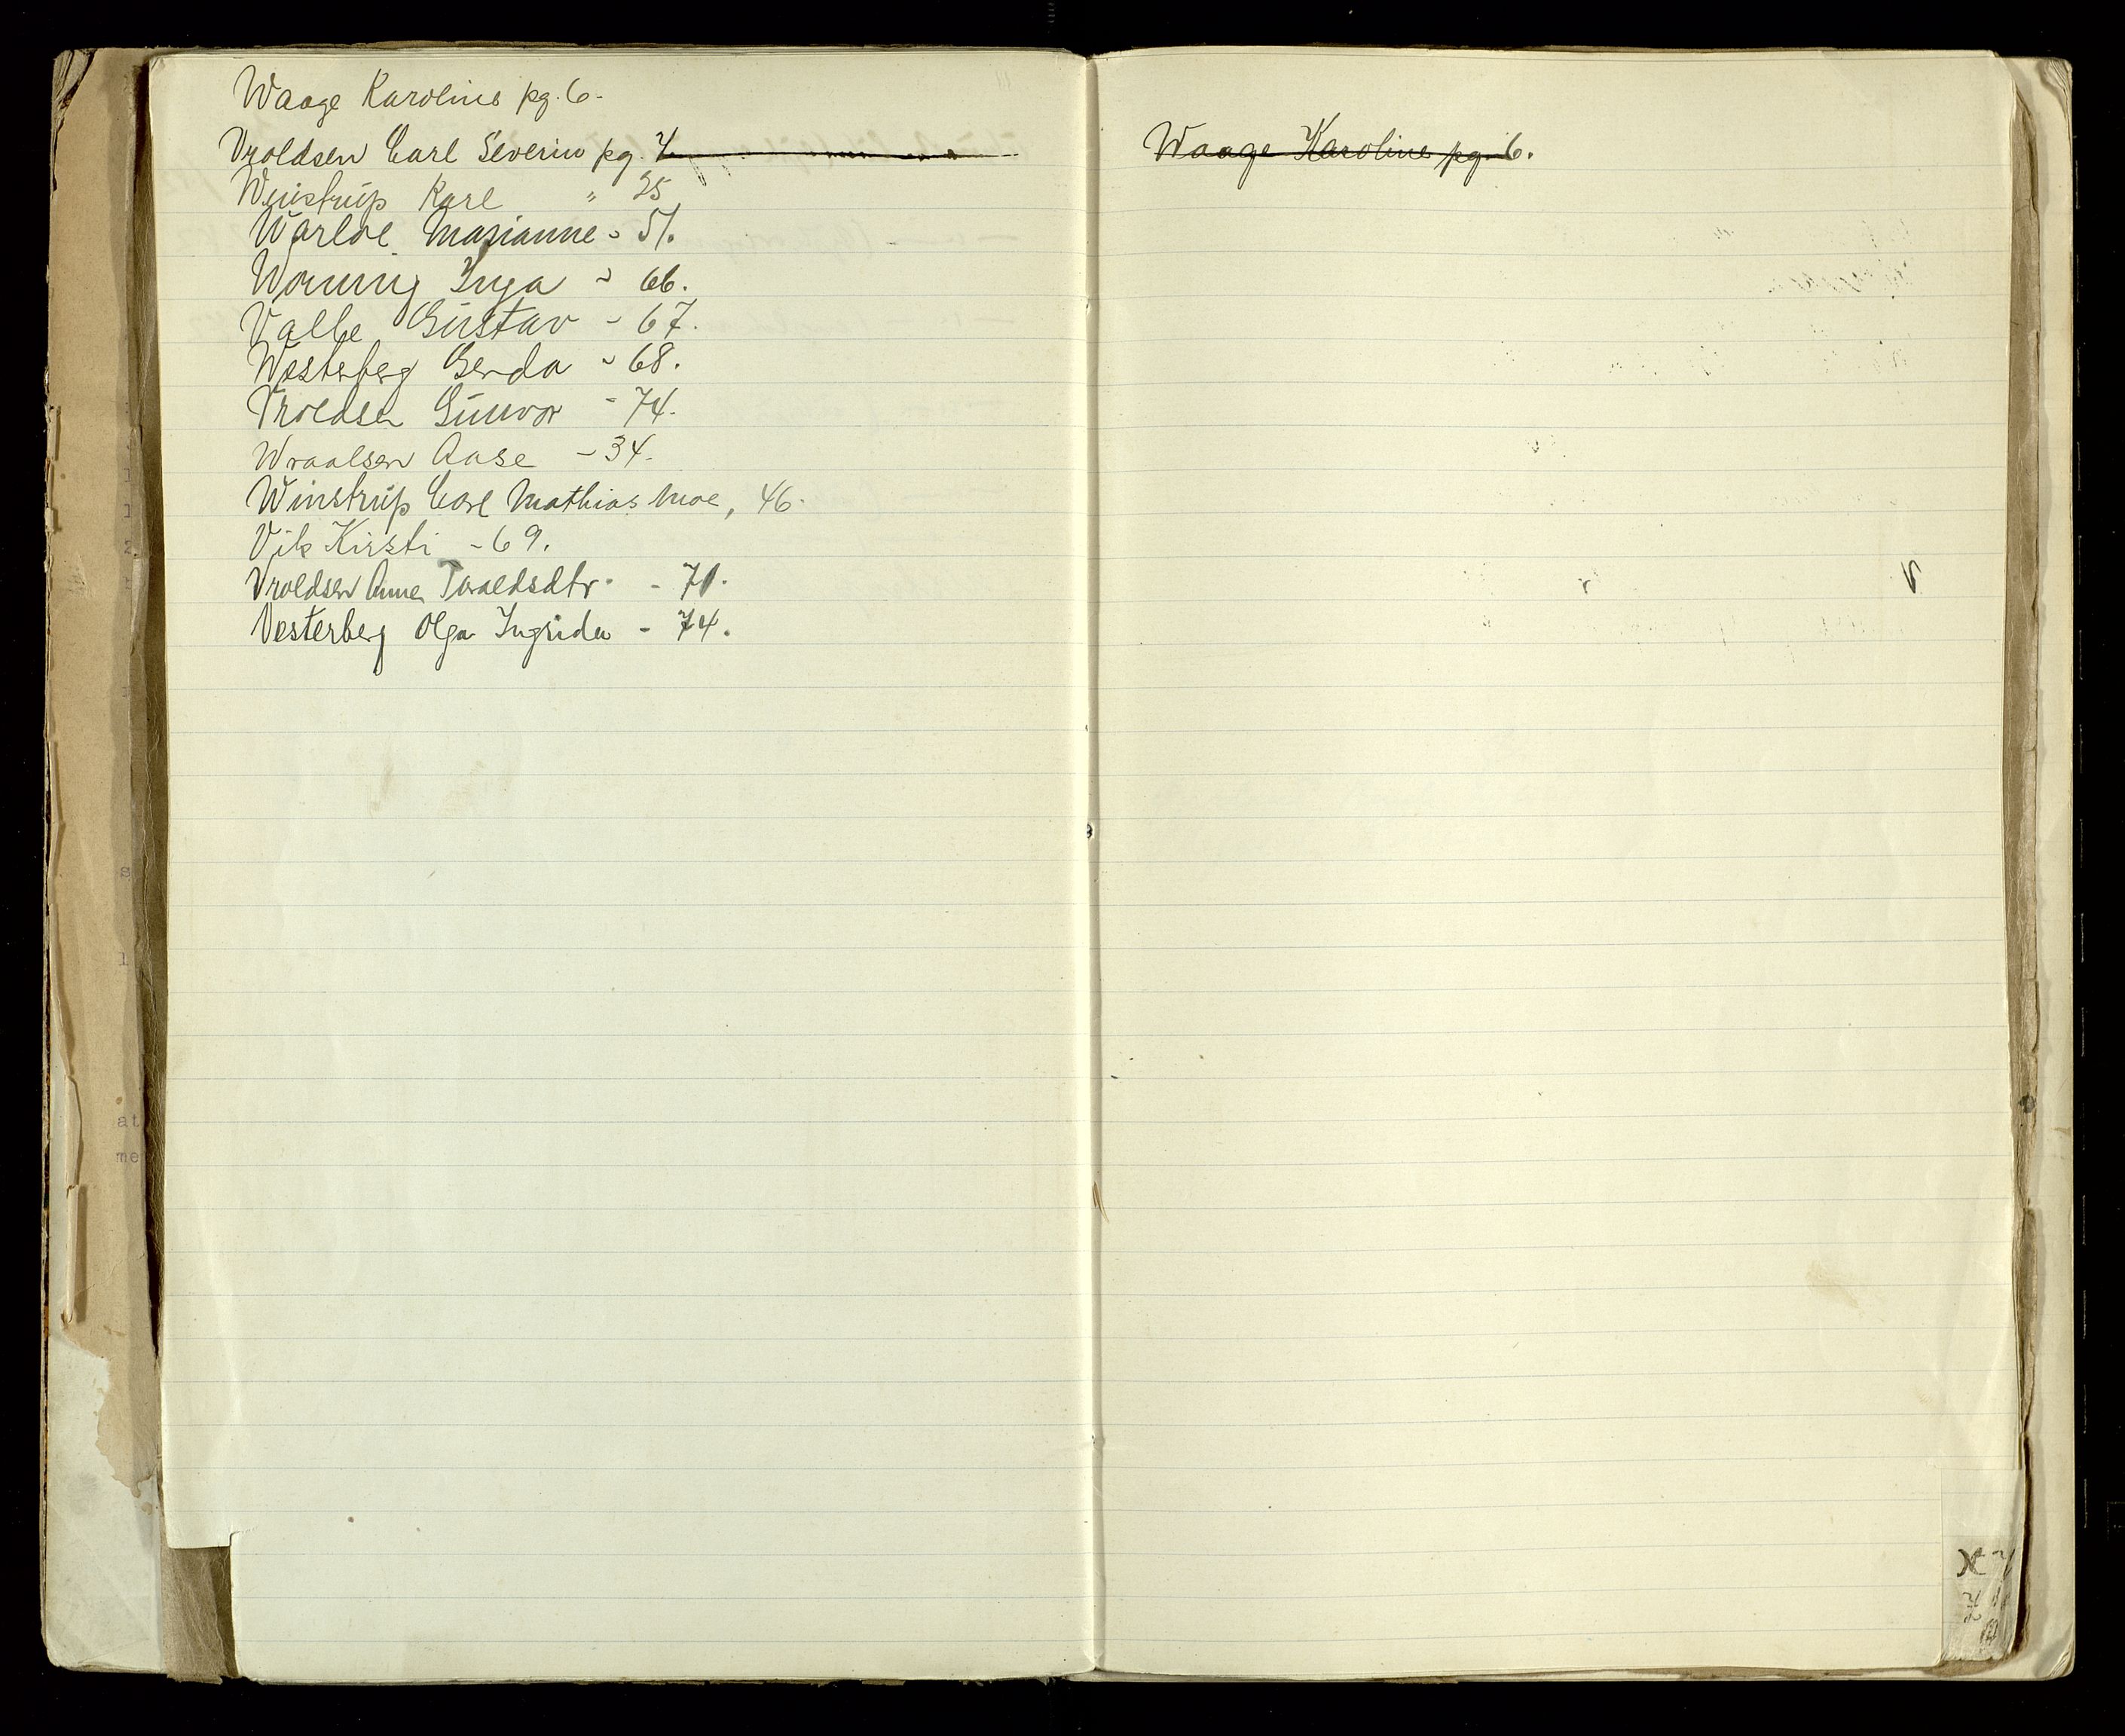 Waage Karoline pg. 6.
Vroldsen Carl Severin pg. 4
Winstrup Karl " 25
Warloe Marianne - 51.
Worning Inga - 66.
Valbe Gustav - 67.
Westerberg Gerda - 68.
Vroldsen Gunvor - 74.
Wraalsen Aase - 34.
Winstrup Carl Mathias Moe, 46.
Vik Kirsti - 69.
Vroldsen Anne Taraldsdtr. - 71.
Vesterberg Olga Ingrida - 74.
Waage Karoline pg. 6.